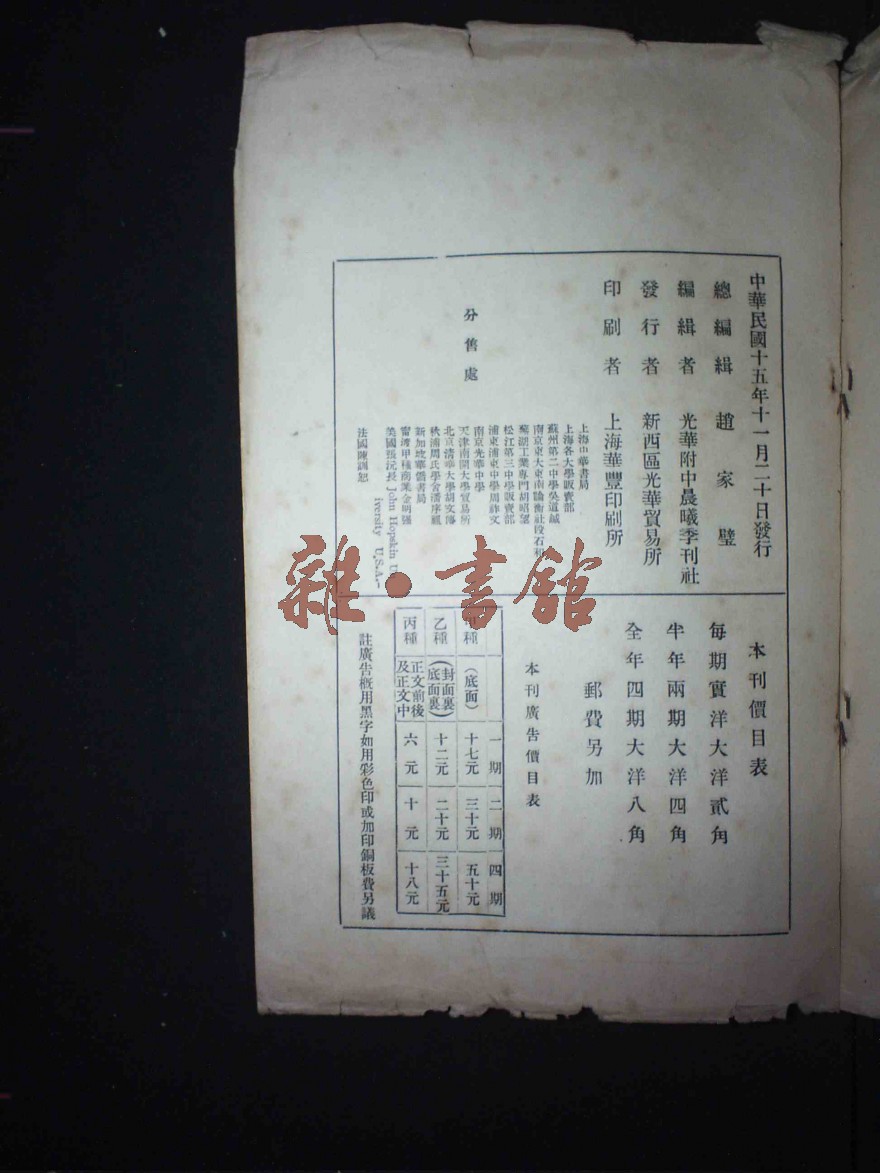 中華民國十五年十一月二十日發行
總編輯 趙家璧
編輯者 光華附中晨曦季刊社
發行者 新西區光華貿易所
印刷者 上海華豐印刷所
分售處
上海中華書局
上海各大學販賣部
蘇州第二中學吳道誠
南京東大東南論衡社段石和
蕪湖工業專門胡昭望
松江第三中學販賣部
浦東浦東中學周祚文
南京光華中學
天津南開大學貿易所
北京清華大學胡文藩
秋浦周氏學舍潘序祖
新加坡華僑書局
甯波甲種商業金明強
美國張沅長 John Hopskin U
iversity U.S.A.
法國陳訓恕
本刊價目表
每期實洋大洋貳角
半年兩期大洋四角
全年四期大洋八角
郵費另加
本刊廣告價目表
一期 二期 四期
種 (底面) 十七元 三十元 五十元
乙種 (封面裏底面裏) 十二元 二十元 三十五元
丙種 正文前後及正文中 六元 十元 十八元
註廣告概用黑字如用彩色印或加印銅板費另議
雜·書館